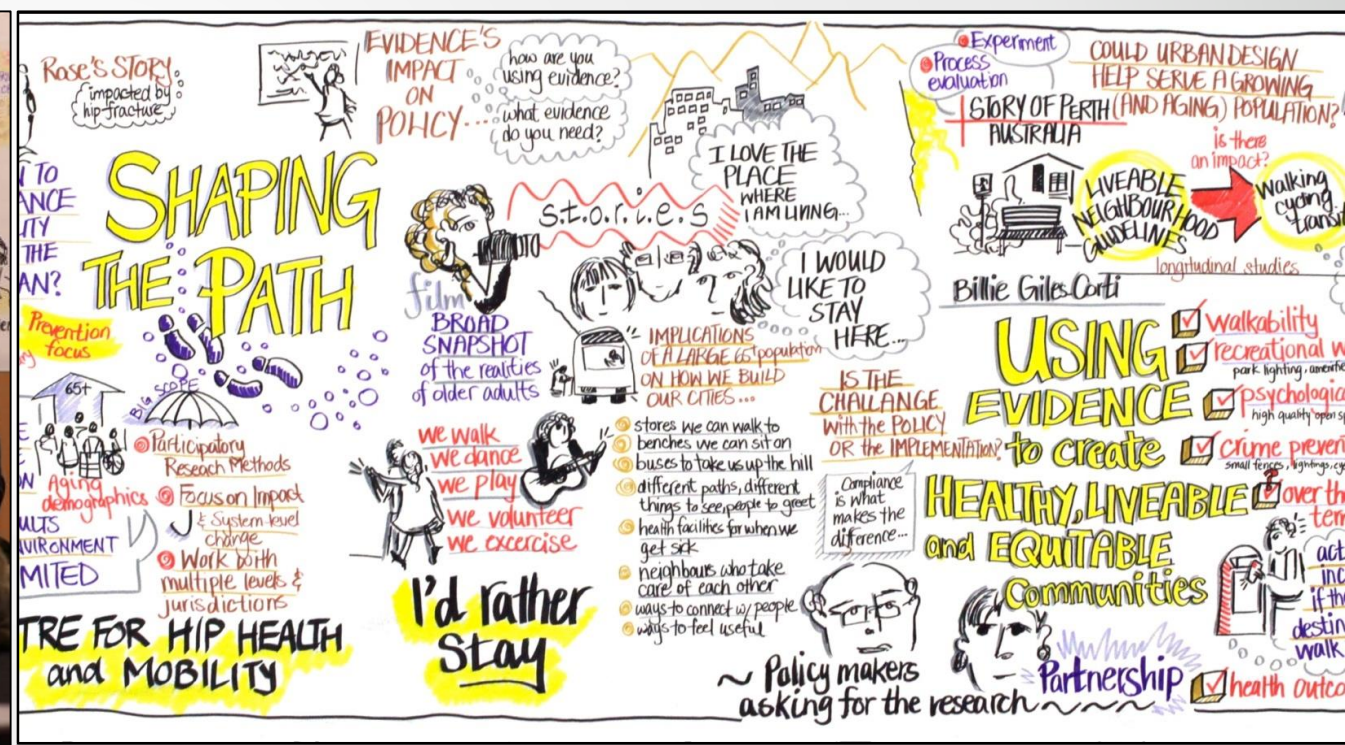 Rose's STORY
impacted by
hip fracture
N TO
ANCE
ITY
THE
AN?
SHAPING
THE PATH
Prevention
focus
65+
BIG SCOPE
Aging
demographics
ULTS
VIRONMENT
MITED
Participatory
Reseach Methods
Focus on Impact
& System-level
change
Work with
multiple levels &
jurisdictions
TRE FOR HIP HEALTH
and MOBILITY
EVIDENCE'S
IMPACT
ON
POLICY...
how are you
using evidence?
what evidence
do you need?
s.t.o.r.i.e.s
film
BROAD
SNAPSHOT
of the realities
of older adults
I LOVE THE
PLACE
WHERE
I AM LIVING...
I WOULD
LIKE TO
STAY
HERE...
IMPLICATIONS
OF A LARGE 65+ population
ON HOW WE BUILD
OUR CITIES...
we walk
we dance
we play
we volunteer
we excercise
I'd rather
Stay
stores we can walk to
benches we can sit on
buses to take us up the hill
different paths, different
things to see, people to greet
health facilites for when we
get sick
neighbours who take
care of each other
ways to connect w/ people
ways to feel useful
IS THE
CHALLANGE
with the POLICY
OR the IMPLEMENTATION?
Compliance
is what
makes the
difference...
~ Policy makers
asking for the research ~~~~
Experiment
Process
evaluation
STORY OF PERTH
AUSTRALIA
COULD URBAN DESIGN
HELP SERVE A GROWING
(AND AGING) POPULATION?
is there
an impact?
LIVEABLE
NEIGHBOURHOOD
GUIDELINES
Walking
cycling
transi
longitudinal studies
Billie Giles-Corti
USING
EVIDENCE
to create
HEALTHY, LIVEABLE
and EQUITABLE
Communities
walkability
recreational w
park lighting, amenitie
psychologica
high quality open sp
crime preven
small fences, lightings, cy
over the
term
act
inc
if the
destin
walk
Partnership
health outco